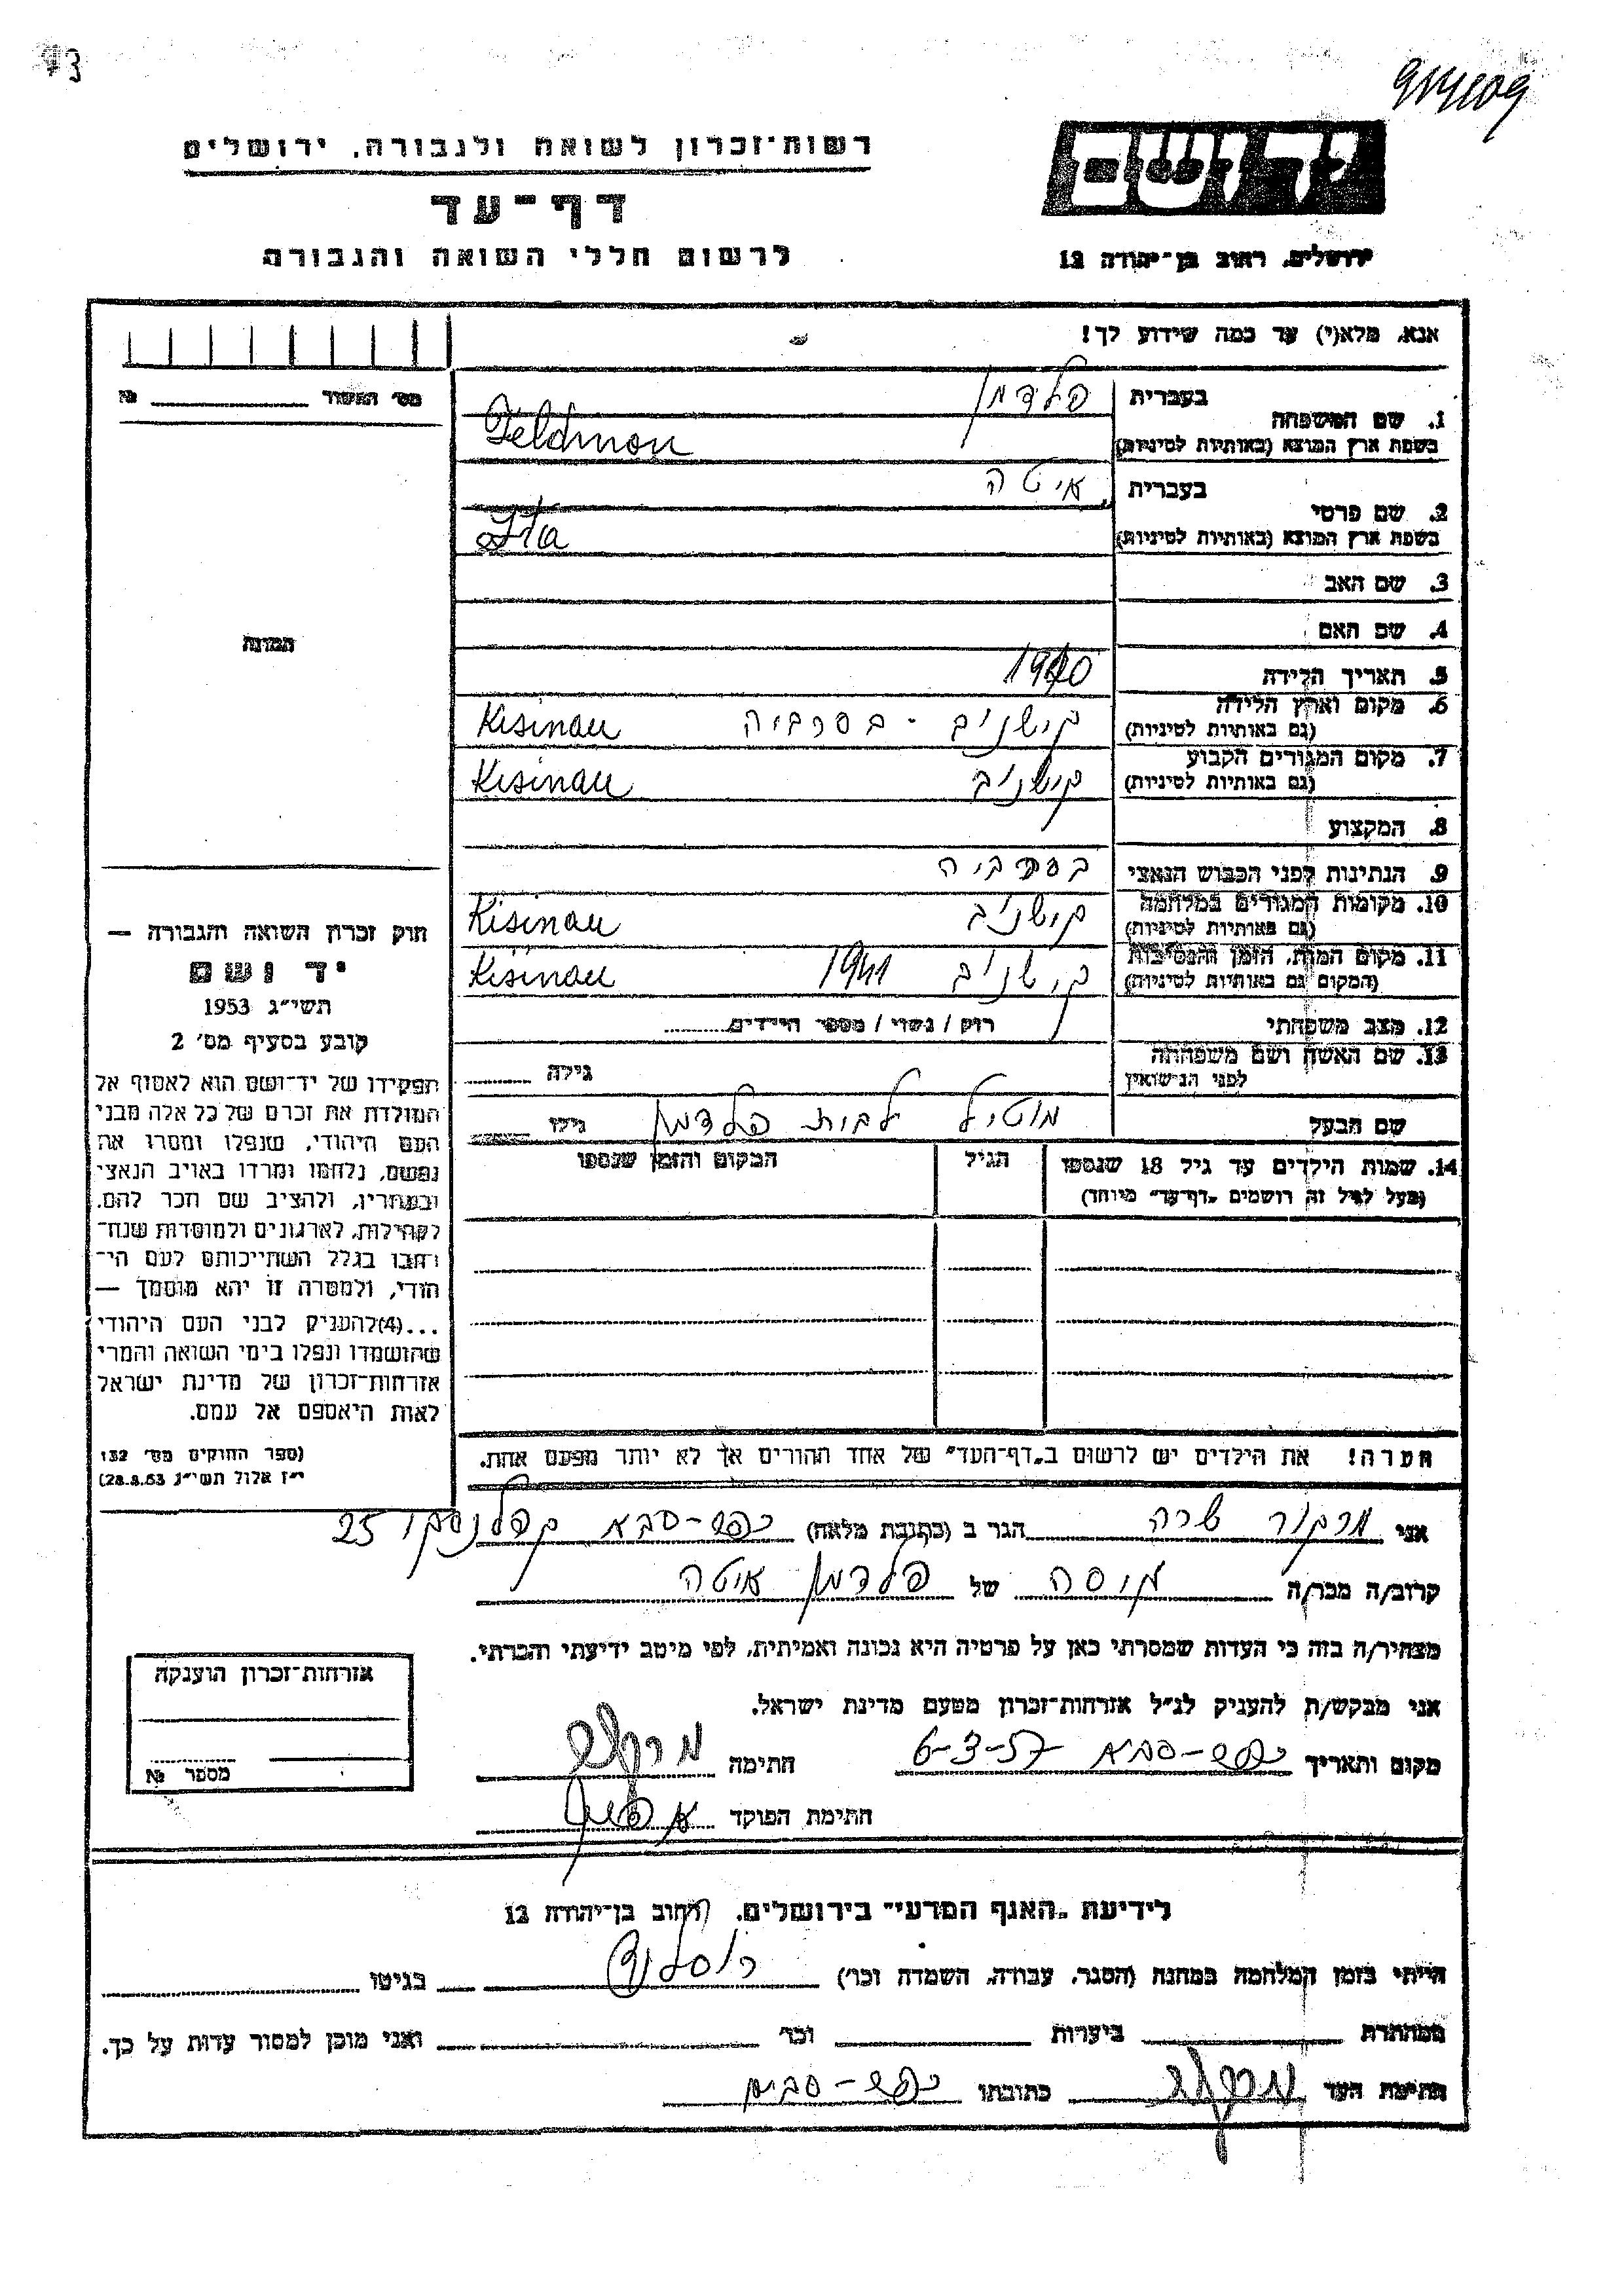 רשות־זכרון לשואה ולגבורה, ירושלים
דף־עד
לרשום חללי השואה והגבורה
יד ושם
ירושלים, רחוב בן־יהודה 12
אנא, מלא(י) עד כמה שידוע לך!
מס' האשור № 
1. שם המשפחה בעברית פלדמן
בשפת ארץ המוצא (באותיות לטיניות) Feldman
2. שם פרטי בעברית איטה
בשפת ארץ המוצא (באותיות לטיניות) Ita
3. שם האב
4. שם האם
התמונה
5. תאריך הלידה
6. מקום וארץ הלידה (גם באותיות לטיניות) קישניב - בסרביה Kisinau
7. מקום המגורים הקבוע (גם באותיות לטיניות) קישניב Kisinau
8. המקצוע
9. הנתינות לפני הכבוש הנאצי בסרביה
10. מקומות המגורים במלחמה (גם באותיות לטיניות) קישניב Kisinau
11. מקום המות, הזמן והנסיבות (המקום גם באותיות לטיניות) קישניב 1941 Kisinau
12. מצב משפחתי רווק / נשוי / מספר הילדים
13. שם האשה ושם משפחתה לפני הנישואין גילה
שם הבעל מוטיל לבית פלדמן גילו
14. שמות הילדים עד גיל 18 שנספו הגיל המקום והזמן שנספו
(מעל לגיל זה רושמים „דף־עד" מיוחד)
חוק זכרון השואה והגבורה —
יד ושם
תשי"ג 1953
קובע בסעיף מס' 2
תפקידו של יד־ושם הוא לאסוף אל
המולדת את זכרם של כל אלה מבני
העם היהודי, שנפלו ומסרו את
נפשם, נלחמו ומרדו באויב הנאצי
ובעוזריו, ולהציב שם וזכר להם,
לקהילות, לארגונים ולמוסדות שנח־
רבו בגלל השתייכותם לעם הי־
הודי, ולמטרה זו יהא מוסמך —
...(4)להעניק לבני העם היהודי
שהושמדו ונפלו בימי השואה והמרי
אזרחות־זכרון של מדינת ישראל
לאות היאספם אל עמם.
(ספר החוקים מס' 132
י"ז אלול תשי"ג 28.8.53)
הערה! את הילדים יש לרשום ב„דף־העד" של אחד ההורים אך לא יותר מפעם אחת.
אני מרקור שרה הגר ב (כתובת מלאה) כפר-סבא קפלנסקי 25
קרוב/ה מכר/ה גיסה של פלדמן איטה
מצהיר/ה בזה כי העדות שמסרתי כאן על פרטיה היא נכונה ואמיתית, לפי מיטב ידיעתי והכרתי.
אני מבקש/ת להעניק לנ"ל אזרחות־זכרון מטעם מדינת ישראל.
מקום ותאריך כפר-סבא 6-3-57 חתימה
חתימת הפוקד
אזרחות־זכרון הוענקה
מספר №
לידיעת „האגף המדעי" בירושלים, רחוב בן־יהודה 12
הייתי בזמן המלחמה במחנה (הסגר, עבודה, השמדה וכו') בגיטו
במחתרת ביערות וכו' ואני מוכן למסור עדות על כך.
חתימת העד כתובתו כפר-סבא